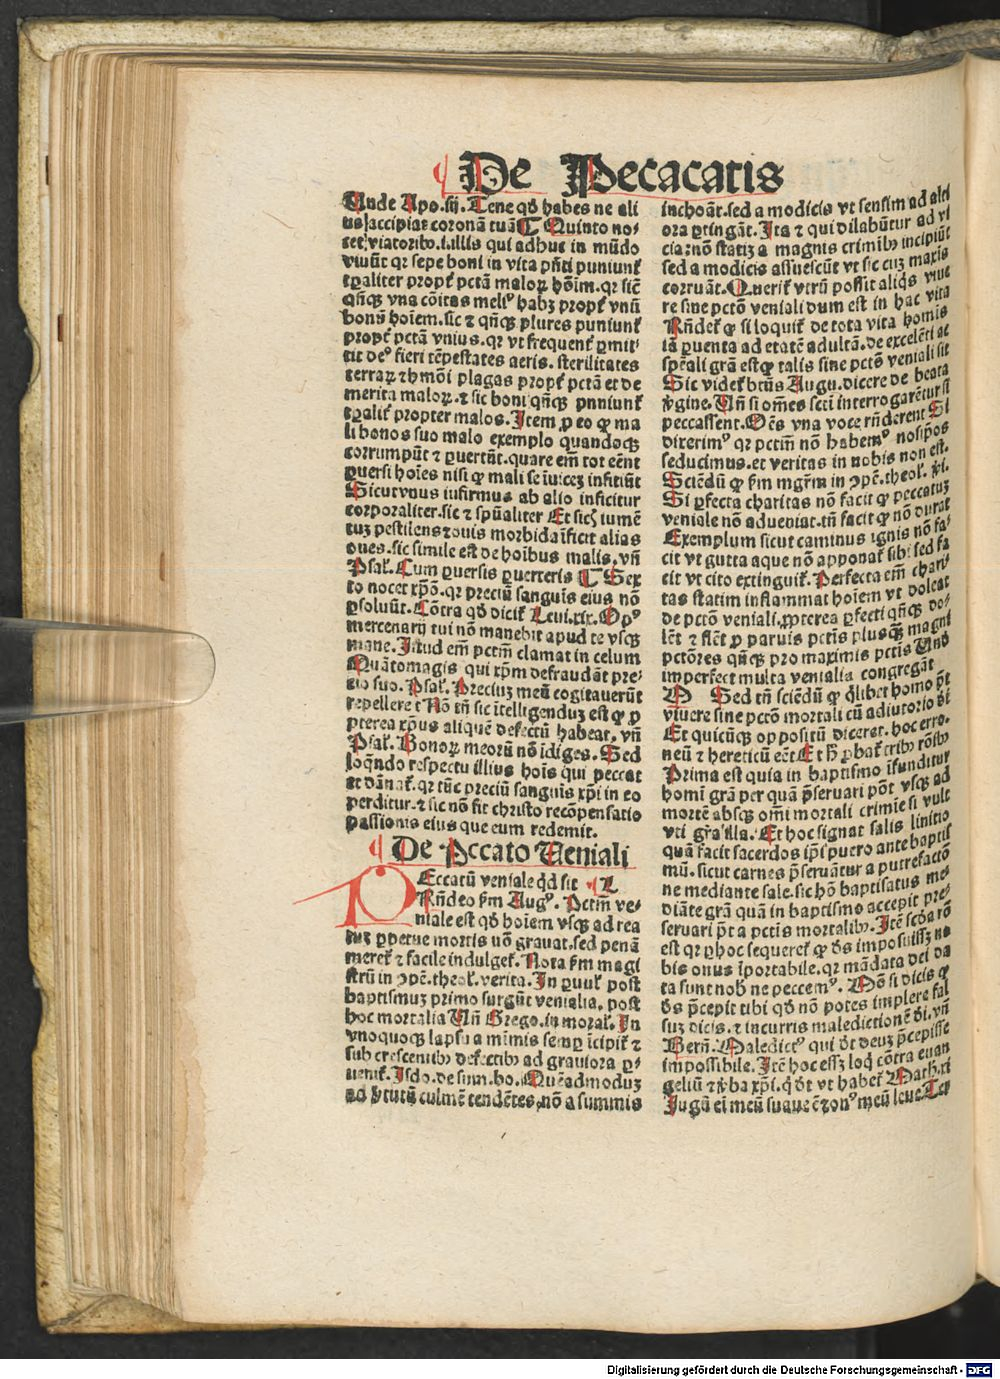 De Pecacatis
Unde Apo. iij. Tene qd̄ habes ne ali
us accipiat coronā tuā ⁋ Quinto no⸗
cet viatorib᷒. s. illis qui adhuc in mūdo
viuūt qꝛ sepe boni in vita p̄nti puniunt̄
tꝑaliter propt̄ pctā maloꝝ hoīm. qꝛ sic̄
qn̄qꝫ vna cōitas meli᷒ habꝫ propt̄ vnū
bonū hoīem. sic ⁊ qn̄qꝫ plures puniunt̄
propt̄ pctā vnius. qꝛ vt frequent̄ ꝑmit⸗
tit de᷒ fieri tēpestates aeris. sterilitates
terraꝝ ⁊ hmōi plagas propt̄ pctā et de
merita maloꝝ. ⁊ sic boni qn̄qꝫ pnniunt̄
tꝑalit̄ propter malos. Item ꝓ eo ꝙ ma
li bonos suo malo exemplo quandoqꝫ
corrumpūt ⁊ ꝑuertūt. quare em̄ tot eēnt
ꝑuersi hoīes nisi ꝙ mali se īuicē inficiūt
Sicut vnus infirmus ab alio inficitur
corporaliter. sic ⁊ spūaliter Et sic̄ iumē
tuꝫ pestilens ⁊ ouis morbida īficit alias
oues. sic simile est de hoībus malis. vn̄
Psal̄. Cum ꝑuersis ꝑuerteris ⁋ Sex
to nocet xp̄o. qꝛ preciū sanguis eius nō
ꝑsoluūt. Cōtra qd̄ dicit̄ Leui. xix. Op᷒
mercenarij tui nō manebit apud te vsqꝫ
mane. Istud em̄ pctm̄ clamat in celum
Quātomagis qui xp̄m defraudāt pre⸗
cio suo. Psal̄. Preciuꝫ meū cogitauerūt
repellere ⁊ Nō tn̄ sic ītelligenduꝫ est ꝙ ꝓ
pterea xp̄us aliquē defectū habeat. vn̄
Psal̄. Bonoꝝ meorū nō īdiges. Sed
loqn̄do respectu illius hoīs qui peccat
et dānat̄. qꝛ tūc preciū sanguis xp̄i in eo
perditur. ⁊ sic nō fit christo recōpensatio
passionis eius que eum redemit.
De Pccato Ueniali
PEccatū veniale qd̄ sit L
Rn̄deo ẜm Aug᷒. Pctm̄ ve⸗
niale est qd̄ hoīem vsqꝫ ad rea
tuꝫ ꝑpetue mortis nō grauat. sed penā
meret̄ ⁊ facile indulget̄. Nota ẜm magi
strū in ꝯpē. theol. verita. In ꝑuul̄ post
baptismuꝫ primo surgūt venialia, post
hoc mortalia Un̄ Grego. in moral̄. In
vnoquoqꝫ lapsu a mimis semꝑ īcipit̄ ⁊
sub crescentib᷒ defectib᷒ ad grauiora ꝑ⸗
uenit̄. Isdo. de sum. bo. Quēadmoduꝫ
ad v̄tutū culmē tendētes, nō a summis
inchoāt. sed a modicis vt sensim ad alti
ora ꝑtingāt. Ita ⁊ qui dilabūtur ad vi
cia: nō statiꝫ a magnis crimīb᷒ incipiūt
sed a modicis assuescūt vt sic cuꝫ maxīs
corruāt. Querit̄ vtrū possit aliqͥs viue
re sine pctō veniali dum est in hac vita
Rn̄det̄ ꝙ si loquit̄ de tota vita homīs
iā ꝑuenta ad etatē adultā. de excelēti ac
spēali grā est ꝙ talis sine pctō veniali sit
Sic videt̄ btūs Augu. dicere de beata
v̄gine. Un̄ si om̄es scti interrogarētur si
peccassent. Oēs vna voce rn̄derent Si
dixerim᷒ qꝛ pctm̄ nō habem᷒ nosip̄os
seducimus. et veritas in nobis non est.
Sciēdū ꝙ ẜm mgr̄m in ꝯpē. theol̄. xi.
Si ꝑfecta charitas nō facit ꝙ peccatuꝫ
veniale nō adueniat. tn̄ facit ꝙ nō durat
Exemplum sicut caminus ignis nō fa⸗
cit vt gutta aque nō apponat̄ sibi sed fa
cit vt cito extinguit̄. Perfecta em̄ chari⸗
tas statim inflammat hoīem vt doleat
de pctō veniali. ꝓpterea ꝑfecti qn̄qꝫ do⸗
lēt ⁊ flēt ꝓ paruis pctīs plusqꝫ magni
pctōres qn̄qꝫ pro maximis pctīs Und
imperfect multa venialia congregāt
M Sed tn̄ sciēdū ꝙ qͥlibet homo pōt
viuere sine pctō mortali cū adiutorio di
Et quicūqꝫ oppositū diceret. hoc erro.
neū ⁊ hereticū eēt Et h̄ ꝓbat̄ trib᷒ rōīb᷒
Prima est quia in baptismo īfunditur
homī grā per quā p̄seruari pōt vsqꝫ ad
mortē absqꝫ om̄i mortali crimīe si vult
vti gr̄a illa. Et hoc signat salis linitio
quā facit sacerdos ip̄i puero ante baptis
mū. sicut carnes p̄seruātur a putrefactōe
ne mediante sale. sic hō baptisatus me⸗
diāte grā quā in baptismo accepit pre⸗
seruari pōt a pctīs mortalib᷒. Itē scd̄a rō
est qꝛ ꝑ hoc sequeret̄ ꝙ ds̄ imposuissꝫ no
bis onus īportabile. qꝛ mādata dei da
ta sunt nob̄ ne peccem᷒. Mō si dicis ꝙ
ds̄ p̄cepit tibi qd̄ nō potes implere fal
suꝫ dicis. ⁊ incurris maledictionē di. vn̄
Bern̄. Maledict᷒ qui dt̄ deuꝫ p̄cepisse
impossibile. Itē hoc essꝫ loqͥ cōtra euan
geliū ⁊ v̄ba xp̄i. qͥ dt̄ vt habet̄ Math̄. xi
Jugū ei meū suaue ē ⁊ on᷒ meū leue. Ter
Digitalisierung gefördert durch die Deutsche Forschungsgemeinschaft - DFG